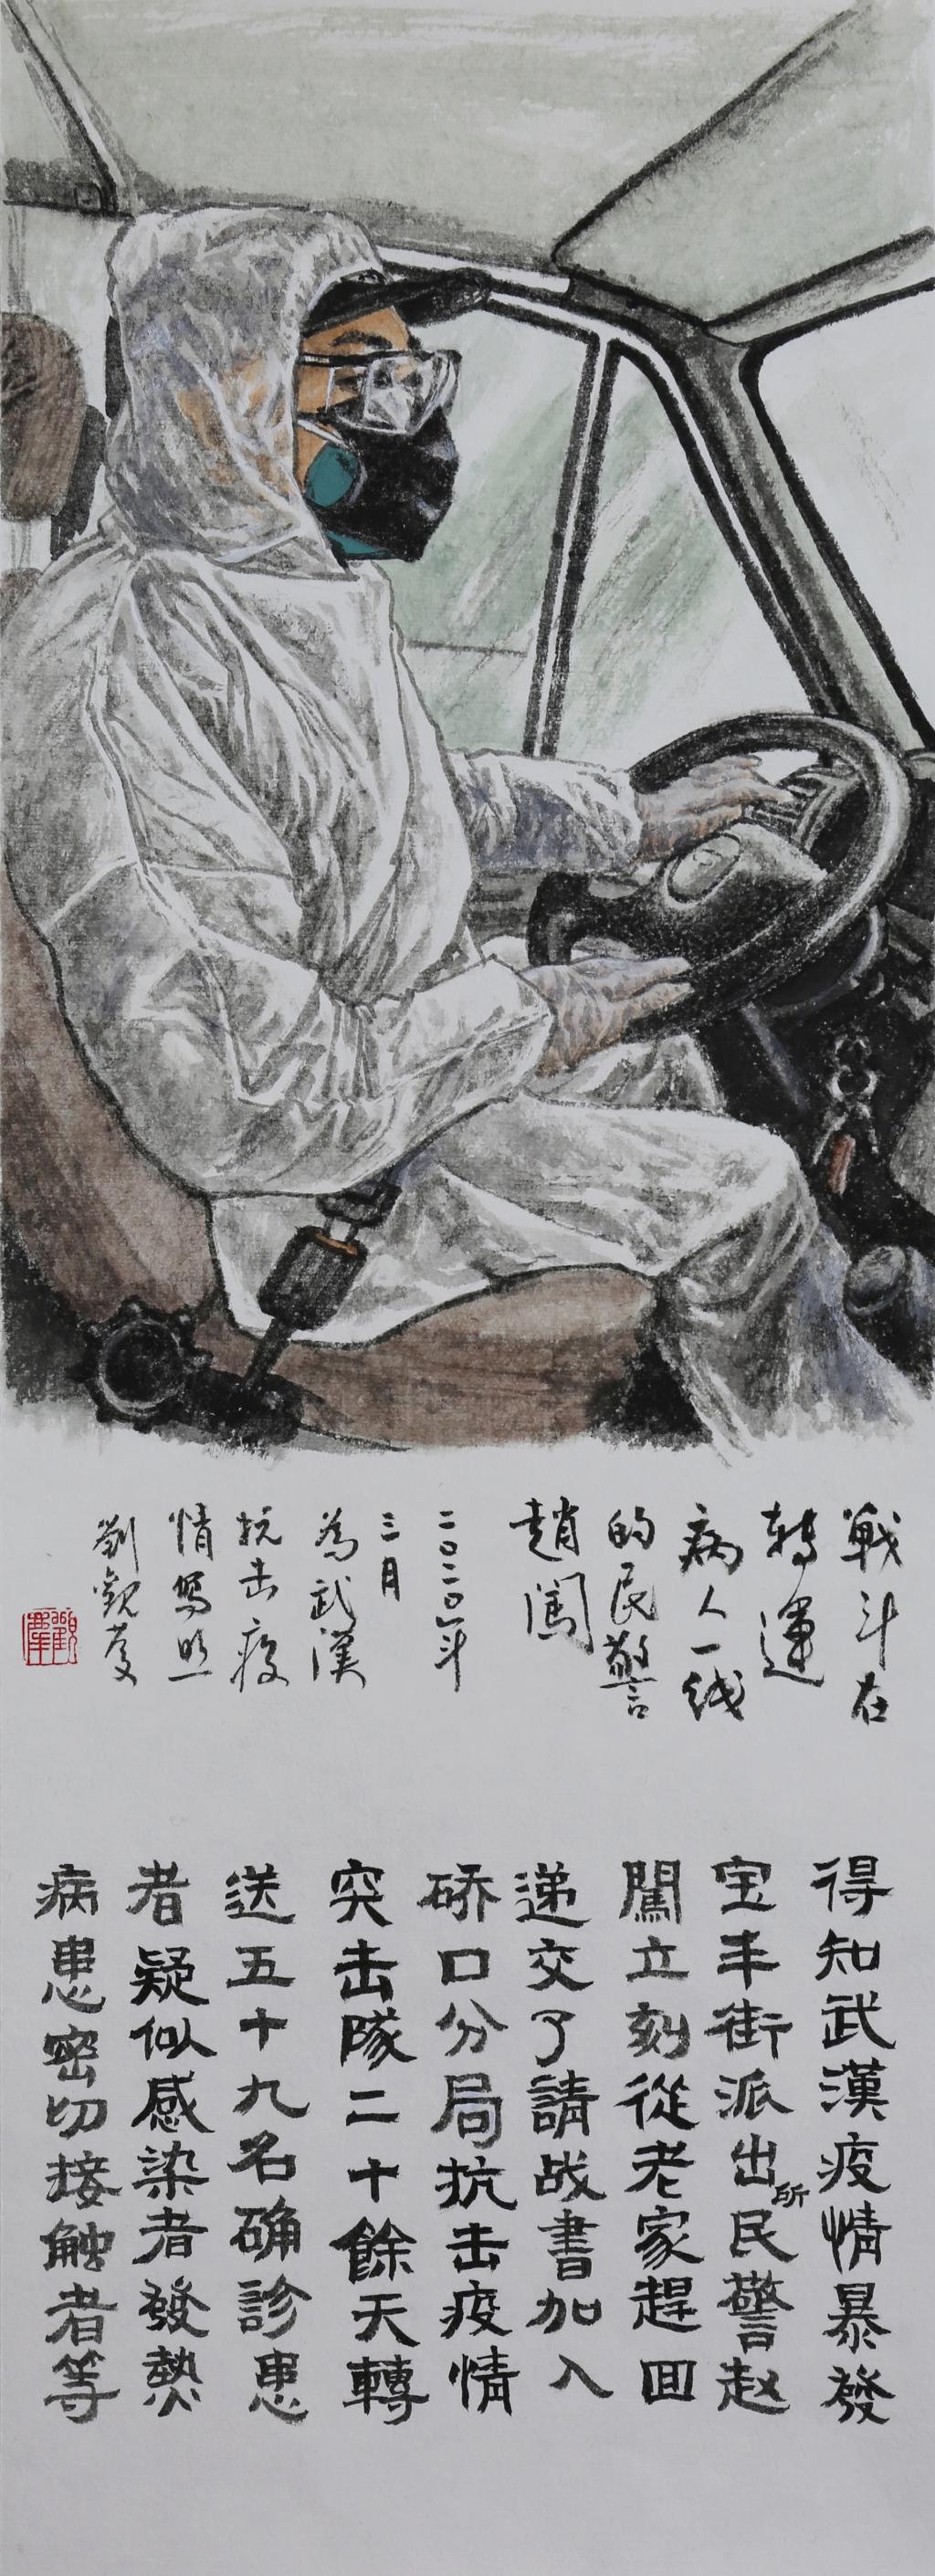 戰斗在
轉運
病人一线
的民警
趙闖
二〇二〇年
三月
為武漢
抗击疫
情寫照
劉觀慶
得知武漢疫情暴發
宝丰街派出所民警赵
闖立刻從老家趕回
递交了請战書加入
硚口分局抗击疫情
突击隊二十餘天轉
送五十九名确診患
者疑似感染者發熱
病患密切接触者等